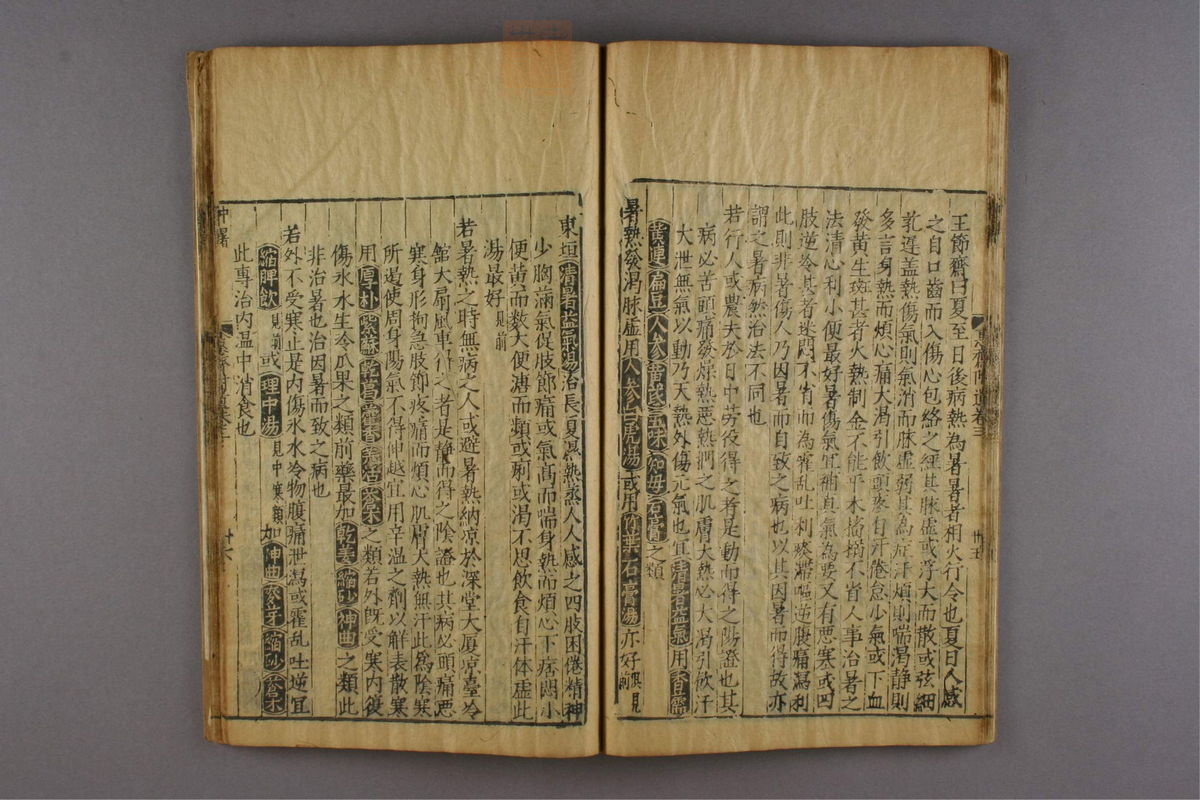 王節齋曰夏至日後病熱為暑暑者相火行令也夏日人感
之自口齒而入傷心包絡之經其脉虛或浮大而散或弦細
乳遲盖熱傷氣則氣消而脉虛弱其為症汗煩則喘渴静則
多言身熱而煩心痛大渴引飲頭疼自汗倦怠少氣或下血
發黃生斑甚者火熱制金不能平木搐搦不省人事治暑之
法清心利小便最好暑傷氣宜補真氣為要又有悪寒或四
肢逆冷甚者迷悶不省而為霍乱吐利痰滯嘔逆腹痛瀉利
此則非暑傷人乃因暑而自致之病也以其因暑而得故亦
謂之暑病然治法不同也
若行人或農夫於日中勞役得之者是動而得之陽證也其
病必苦頭痛發燥熱悪熱捫之肌膚大熱必大渴引飲汗
大泄無氣以動乃天熱外傷元氣也宜清暑益氣用香薷
黃連扁豆人参黃芪五味知母石膏之類
暑熱發渴脉虛用人参白虎湯或用竹葉石膏湯亦好俱見前
東垣清暑益氣湯治長夏濕熱蒸人人感之四肢困倦精神
少胸滿氣促肢節痛或氣高而喘身熱而煩心下痞悶小
便黃而数大便溏而頻或痢或渴不思飲食自汗体虛此
湯最好見前
若暑熱之時無病之人或避暑熱納凉於深堂大厦凉臺冷
館大扇風車得之者是静而得之陰證也其病必頭痛悪
寒身形拘急肢節疼痛而煩心肌膚大熱無汗此為陰寒
所遏使周身陽氣不得伸越宜用辛温之劑以解表散寒
用厚朴紫蘇乾葛藿香羌活蒼术之類若外旣受寒内復
傷氷水生冷瓜果之類前藥最加乾姜縮砂神曲之類此
非治暑也治因暑而致之病也
若外不受寒止是内傷氷水冷物腹痛泄瀉或霍乱吐逆宜
縮脾飲見前或理中湯見中寒類加神曲麥牙縮砂蒼术
此專治内温中消食也
中暑
卅五
卅六